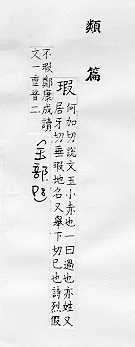 類篇
瑕 何加切說文玉小赤也一曰過也亦姓又
居牙切垂瑕地名又舉下切已也詩烈假
不瑕鄭康成讀
文一重音二
(玉部